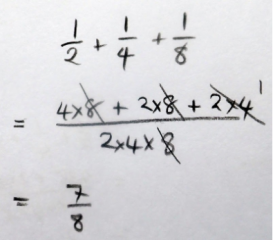 1/2 + 1/4 + 1/8
= (4×8 + 2×8 + 2×4 1) / (2×4×8)
= 7/8